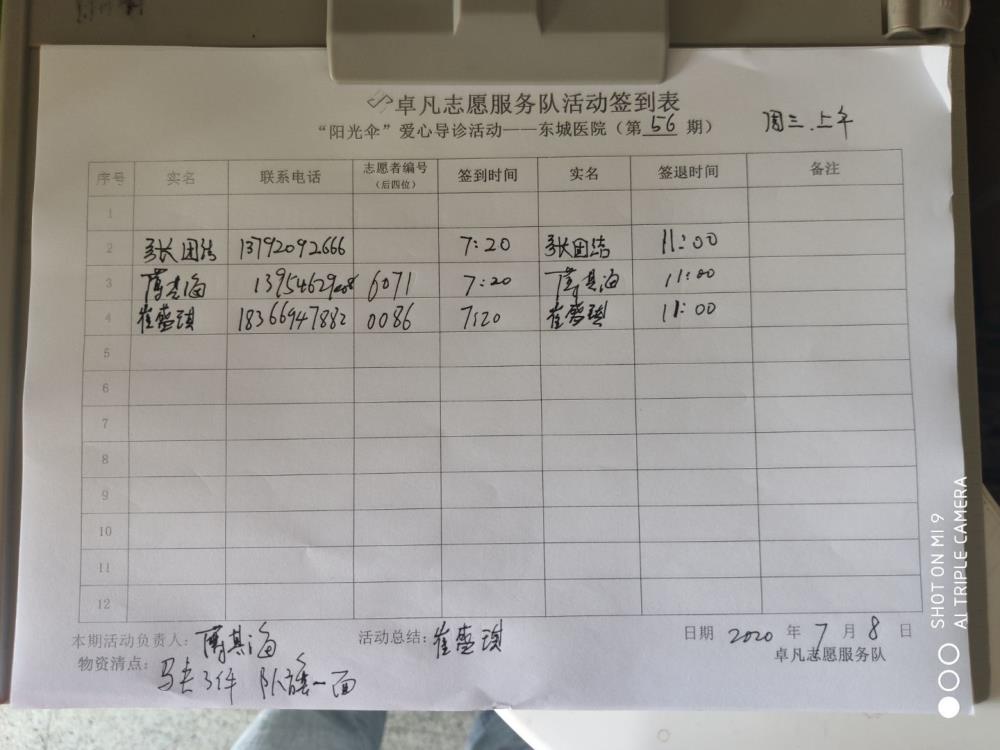 卓凡志愿服务队活动签到表
“阳光伞”爱心导诊活动——东城医院（第 56 期） 周三.上午
序号 实名 联系电话 志愿者编号（后四位） 签到时间 实名 签退时间 备注
1
2 张团结 13792092666 7:20 张团结 11:00
3 其海 13954629 6071 7:20 其海 11:00
4 崔雪琪 18366947882 0086 7:20 崔雪琪 11:00
5
6
7
8
9
10
11
12
本期活动负责人: 其海 活动总结: 崔雪琪 日期 2020 年 7 月 8 日
物资清点: 马夹3件 队旗一面 卓凡志愿服务队
SHOT ON MI 9
AI TRIPLE CAMERA